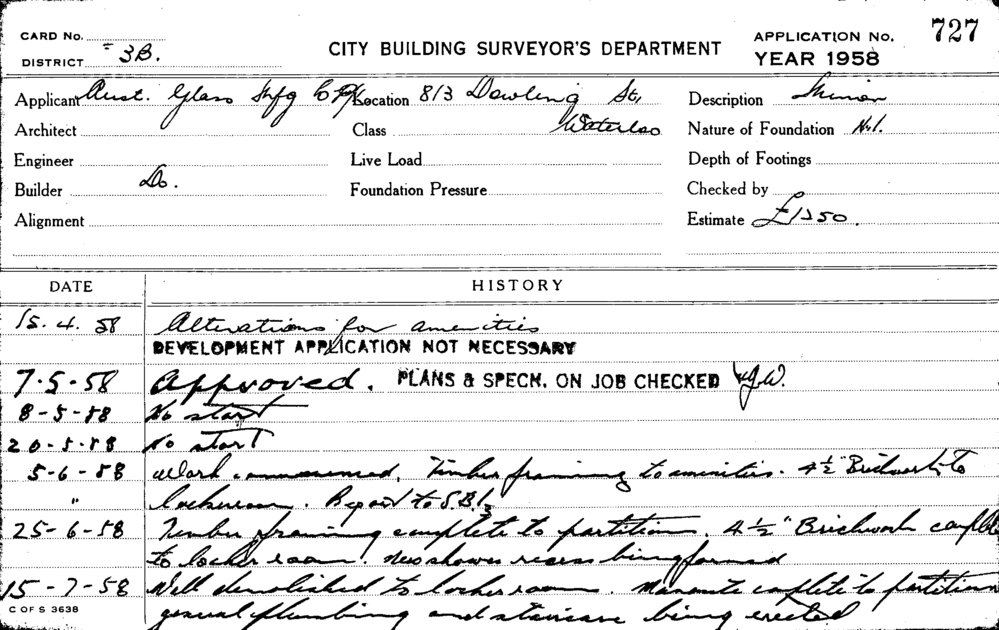 CARD No.
DISTRICT 3B.
CITY BUILDING SURVEYOR'S DEPARTMENT
APPLICATION No. 727
YEAR 1958
Applicant Aust. Glass Mfg Co P/L Location 813 Dowling St, Description Minor
Architect Class Waterloo Nature of Foundation Nil.
Engineer Live Load Depth of Footings
Builder Do. Foundation Pressure Checked by
Alignment Estimate £1250.
DATE HISTORY
15. 4. 58 Alterations for amenities
DEVELOPMENT APPLICATION NOT NECESSARY
7-5-58 Approved. PLANS & SPECN. ON JOB CHECKED
8-5-58 No start
20-5-58 No start
5-6-58 Work commenced. Timber framing to amenities. 4½" Brickwork to
" lockeroom. Report to S.B.I.
25-6-58 Timber framing complete to partition. 4½" Brickwork complete
to locker room. New shower recess being formed
15-7-58 Wall demolished to locker room. Masonite complete to partition
general plumbing and staircase being erected
C OF S 3638